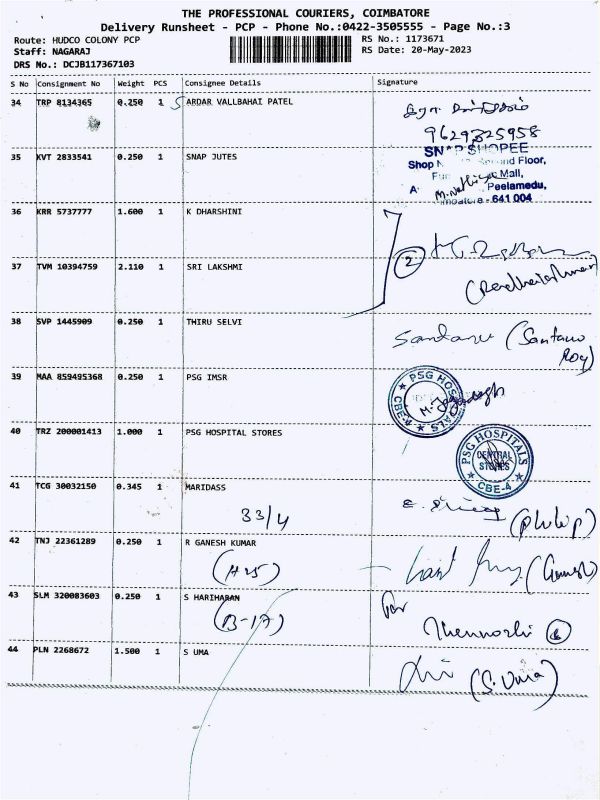 THE PROFESSIONAL COURIERS, COIMBATORE
Delivery Runsheet - PCP - Phone No.:0422-3505555 - Page No.:3
Route: HUDCO COLONY PCP RS No.: 1173671
Staff: NAGARAJ RS Date: 20-May-2023
DRS No.: DCJB117367103
S No Consignment No Weight PCS Consignee Details Signature
34 TRP 8134365 0.250 1 S ARDAR VALLBAHAI PATEL
9629325958
35 KVT 2833541 0.250 1 SNAP JUTES
SNAP SHOPEE
Shop Floor,
Mall,
Peelamedu,
- 641 004
36 KRR 5737777 1.600 1 K DHARSHINI
2
37 TVM 10394759 2.110 1 SRI LAKSHMI
38 SVP 1445909 0.250 1 THIRU SELVI
Santanu (Santanu
Roy)
39 MAA 859495368 0.250 1 PSG IMSR
PSG HOSPITALS
CBE-4
40 TRZ 200001413 1.000 1 PSG HOSPITAL STORES
PSG HOSPITALS
CENTRAL
STORES
CBE-4
41 TCG 30032150 0.345 1 MARIDASS
33/4
(Philip)
42 TNJ 22361289 0.250 1 R GANESH KUMAR
(H25)
(Ganesh)
43 SLM 320083603 0.250 1 S HARIHARAN
(B-17)
For
Thennozhi
44 PLN 2268672 1.500 1 S UMA
(S. Uma)